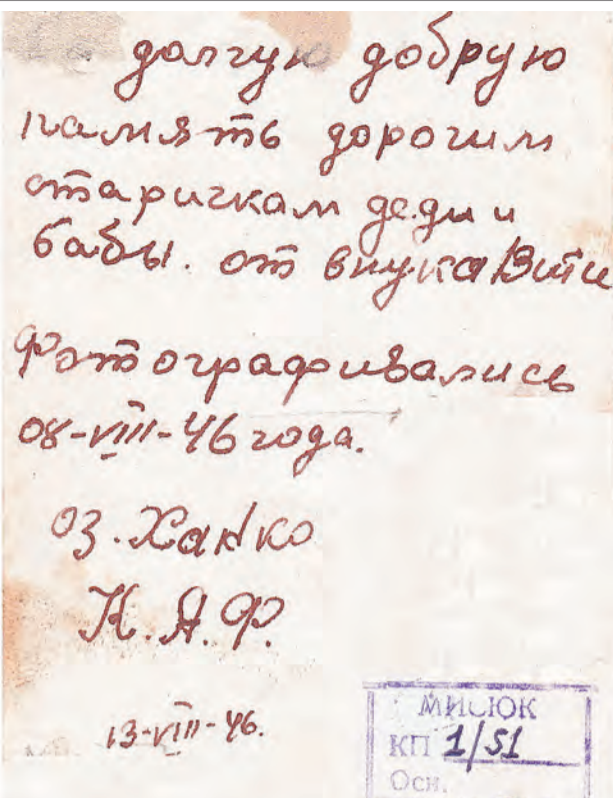 долгую добрую
память дорогим
старичкам деди и
бабы. от внука Вити
Фотографивались
08-VIII-46 года.
оз. Ханко
К. Я. Ф.
13-VIII-46.
МИСЮК
КП 1/51
Осн.